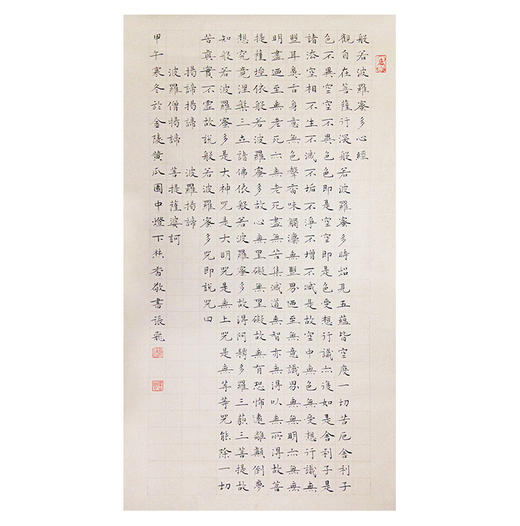 般若波羅蜜多心經
觀自在菩薩行深般若波羅蜜多時照見五蘊皆空度一切苦厄舍利子
色不異空空不異色色即是空空即是色受想行識亦復如是舍利子是
諸法空相不生不滅不垢不淨不增不減是故空中無色無受想行識無
眼耳鼻舌身意無色聲香味觸法無眼界乃至無意識界無無明亦無無
明盡乃至無老死亦無老死盡無苦集滅道無智亦無得以無所得故菩
提薩埵依般若波羅蜜多故心無罣礙無罣礙故無有恐怖遠離顛倒夢
想究竟涅槃三世諸佛依般若波羅蜜多故得阿耨多羅三藐三菩提故
知般若波羅蜜多是大神咒是大明咒是無上咒是無等等咒能除一切
苦真實不虛故說般若波羅蜜多咒即說咒曰
揭諦揭諦 波羅揭諦
波羅僧揭諦 菩提薩婆訶
甲午寒冬於金陵黃瓜園中燈下焚香敬書張